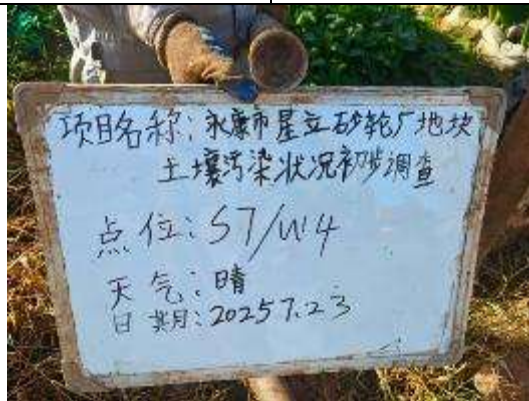 项目名称：永康市星立砂轮厂地块
土壤污染状况初步调查
点位：S7/W4
天气：晴
日期：2025 7.23